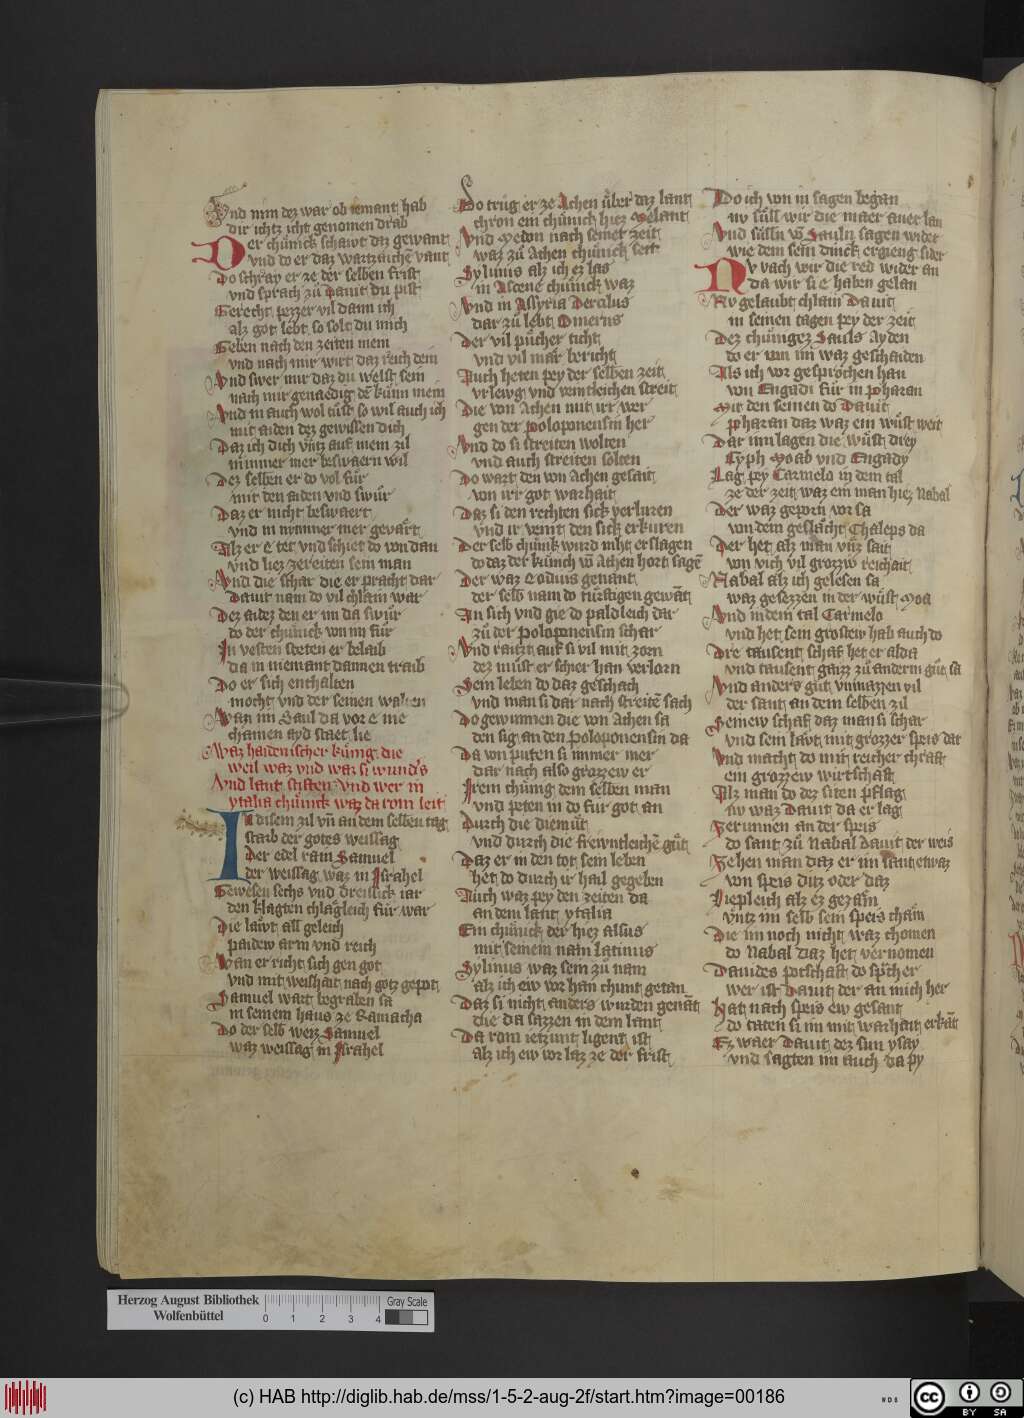 Und nim dez war ob iemant hab
dir ichtz icht genomen drab
Der chunick schawt daz gewant
vnd do er daz wartzaichen vant
Do schray er ze der selben frist
vnd sprach zů Dauit du pist
Gerecht pezzer vil dann ich
alz got lebt so solt du mich
Geben nach den zeiten mein
vnd nach mir wirt daz reich dein
Vnd swer mir daz du welst sein
nach mir genaedig dem kunn mein
Vnd in auch wol tůst so wil auch ich
mit aiden dez gewissen dich
Daz ich dich vntz auf mein zil
nimmer mer beswaern wil
Dez selben er do vol fůr
mit den aiden vnd swůr
Daz er nicht beswaert
vnd in nymmer mer gevart
Alz er e tet vnd schiet do von dan
vnd liez ze reiten sein man
Vnd die schar die er pracht dar
Dauit nam do vil chlain war
Dez aidez den er im da swůr
do der chunick von im fůr
In vesten steten er belaib
da in niemant dannen traib
Do er sich enthalten
mocht vnd der seinen walten
Wan im Saul da vor e me
chainen ayd staet lie
Waz haidenischer kunig die
weil waz vnd waz si wunders
Vnd laut stiften vnd wer in
ytalia chunick waz da rom leit
In disem zil vn an dem selben tag
starb der gotes weissag
Der edel rain Samuel
der weissag waz in Israhel
Gewesen sechs vnd dreissick iar
den klagten chlaegleich fur war
Die lawt all geleich
paidew arm vnd reich
Wan er richt sich gen got
vnd mit weishait nach gotz gepot
Samuel wart begraben sa
in seinem haus ze Ramacha
Do der selb werz Samuel
waz weissag in Israhel
Do trug er ze Achen uber daz lant
chron ein chunick hiez Melant
Vnd Medon nach seiner zeit
waz zů Achen chunick seit
Syluius alz ich ez las
in Ascene chunick waz
Vnd in Assyria Deralus
dar zů lebt Omerus
Der vil pucher ticht
vnd vil mar bericht
Auch heten pey der selben zeit
vrlewg vnd veintleichen streit
Die von Achen mit irr wer
gen der poloponensin her
Vnd do si streiten wolten
vnd auch streiten solten
Do wart den von Achen gesait
von irr got warhait
Daz si den rechten sick verlurен
vnd ir veint den sick erkuren
Der selb chunk wurd niht erslagen
do daz der kunich von Achen hort sagen
Der waz Codrus genant
der selb nam do turftigen gewant
An sich vnd gie do paldleich dar
zů der poloponensin schar
Vnd raitzt auf si vil mit zorn
dez must er schier han verlorn
Sein leben do daz geschach
vnd man si dar nach streiten sach
Do gewunnen die von Achen sa
den sig an den poloponensin da
Da von puten si immer mer
dar nach also grozzew er
Irem chunig dem selben man
vnd peten in do fur got an
Durch die diemůt
vnd durch die frewntleichen gůt
Daz er in den tot sein leben
het do durch ir hail gegeben
Auch waz pey den zeiten da
an dem lant ytalia
Ein chunick der hiez alsus
mit seinem nam Latinus
Sylinus waz sein zů nam
alz ich ew vor han chunt getan
Daz si nicht anders wurden genant
die da sazzen in dem lant
Da rom ietzunt ligent ist
alz ich ew vor laz ze der frist
Do ich von in sagen began
nv sull wir die maer auer lan
Vnd sulln von Sauln sagen wider
wie dem sein dinck ergieng sider
Nv vach wir die red wider an
da wir si e haben gelan
Nv gelaubt chlain Dauit
in seinen tagen pey der zeit
Dez chunigez Sauls ayden
do er von im waz geschaiden
Als ich vor gesprochen han
von Engadi fur in pharan
Mit den seinen do Dauit
pharan daz waz ein wust weit
Dar inn lagen die wust drey
Cyph Moab vnd Engady
Lag pey Carmelo in dem tal
ze der zeit waz ein man hiez Nabal
Der waz geporn vor sa
von dem geslacht Chaleps da
Der het alz man vnz sait
von vich vil grozzw reichait
Nabal alz ich gelesen sa
waz gesezzen in der wust Moa
Vnd in dem tal Carmelo
vnd het sein grostew hab auch do
Dre tausent schaf het er alda
vnd tausent gaizz zů anderm gůt sa
Vnd anders gůt vnmazzen vil
der sant an dem selben zil
Seinew schaf daz man si schar
vnd sein lawt mit grozzer speis dar
Vnd macht do mit reicher chraft
ein grozzew wirtschaft
Alz man do dez siten pflag
nv waz Dauit da er lag
Zerunnen an der speis
do sant zů Nabal Dauit der weis
Sehen man daz er im sant etwaz
von speis ditz oder daz
Liepleich alz ez gezam
vntz im selb sein speis cham
Die im noch nicht waz chomen
do Nabal daz het vernomen
Dauides potschaft do sprcher
wer ist Dauit der an mich her
Hat nach speis ew gesant
do taten si im mit warhait erkant
Ez waer Dauit dez sun ysay
vnd sagten im auch da py
Herzog August Bibliothek
Wolfenbüttel
0 1 2 3 4
Gray Scale
(c) HAB http://diglib.hab.de/mss/1-5-2-aug-2f/start.htm?image=00186
WDB
cc BY SA